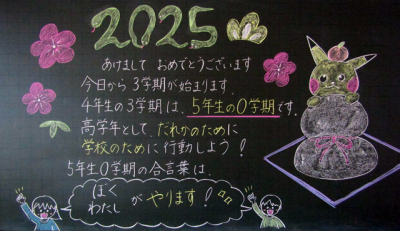 2025
あけまして おめでとうございます
今日から3学期が始まります.
4年生の3学期は、5年生の0学期です.
高学年として、だれかのために
学校のために行動しよう!
5年生0学期の合言葉は、
ぼく
わたし が やります!